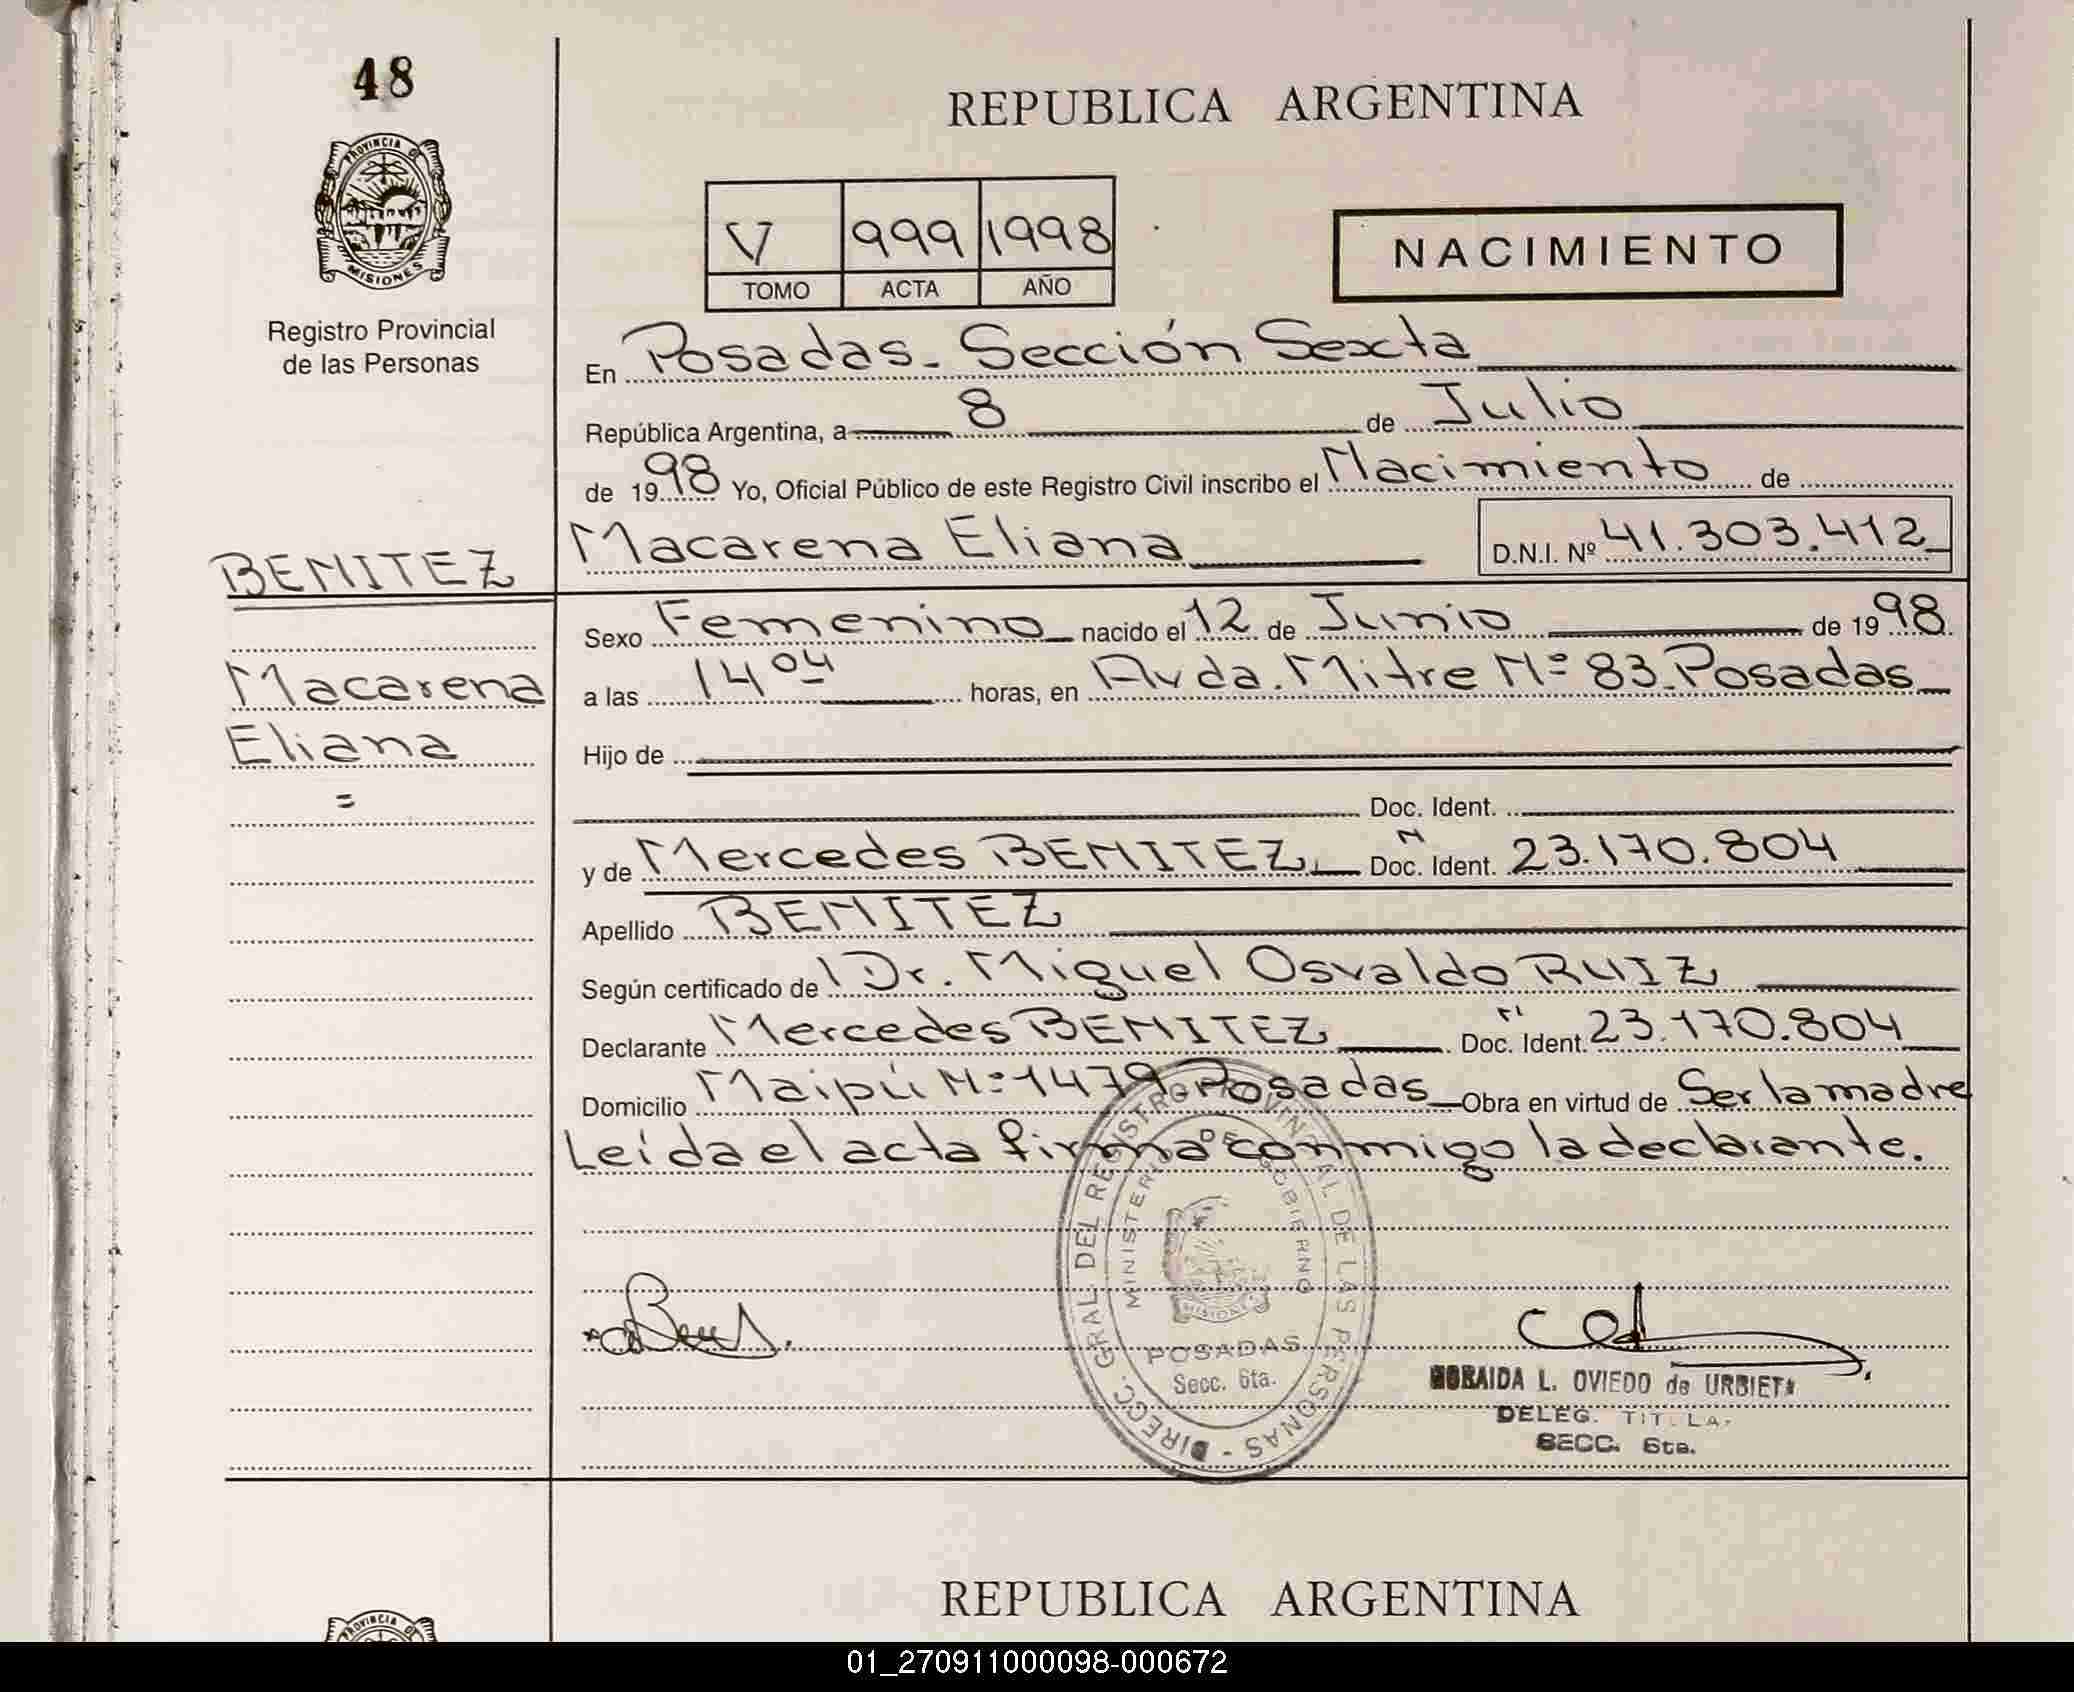 48
REPUBLICA ARGENTINA
PROVINCIA DE
MISIONES
Registro Provincial
de las Personas
V 999 1998
TOMO ACTA AÑO
NACIMIENTO
En Posadas_ Sección Sexta
República Argentina, a 8 de Julio
de 1998 Yo, Oficial Público de este Registro Civil inscribo el Nacimiento de
BENITEZ
Macarena Eliana D.N.I. Nº 41.303.412
Macarena
Eliana
=
Sexo Femenino nacido el 12 de Junio de 1998
a las 14 04 horas, en Avda. Mitre Nº 83_Posadas
Hijo de
Doc. Ident.
y de Mercedes BENITEZ Doc. Ident. 23.170.804
Apellido BENITEZ
Según certificado de Dr. Miguel Osvaldo RUIZ
Declarante Mercedes BENITEZ Doc. Ident. 23.170.804
Domicilio Maipú Nº 1479 Posadas Obra en virtud de Ser la madre
Leída el acta firma conmigo la declarante.
DIRECC. GRAL. DEL REGISTRO PROVINCIAL DE LAS PERSONAS -
MINISTERIO DE GOBIERNO
MISIONES
POSADAS
Secc. 6ta.
L. OVIEDO de URBIETA
DELEG. TITULAR
SECC. 6ta.
REPUBLICA ARGENTINA
PROVINCIA DE
01_270911000098-000672